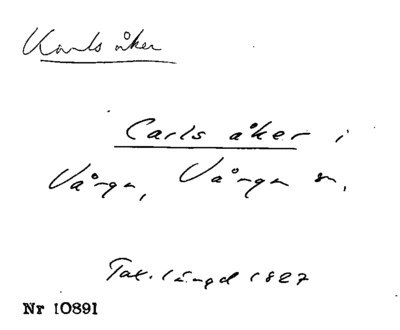 Karls åker
Carls åker i
Vånga, Vånga sn.
Tax. längd 1827
Nr 10891